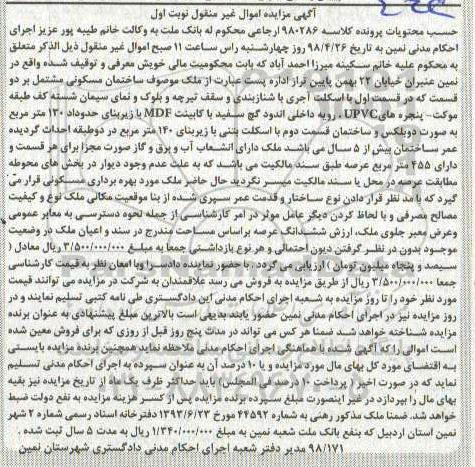 آگهی مزایده اموال غیر منقول نوبت اول
حسب محتویات پرونده کلاسه ۹۸۰۲۸۶ ارجاعی محکوم له بانک ملت به وکالت خانم طیبه پور عزیز اجرای
احکام مدنی نمین به تاریخ ۹۸/۴/۲۶ روز چهارشنبه راس ساعت ۱۱ صبح اموال غیر منقول ذیل الذکر متعلق
به محکوم علیه خانم سکینه میرزا احمد آباد که بابت محکومیت مالی خویش معرفی و توقیف شده واقع در
نمین عنبران خیابان ۲۲ بهمن پایین تراز اداره پست عبارت از ملک موصوف ساختمان مسکونی مشتمل بر دو
قسمت که در قسمت اول با اسکلت آجری با شناژبندی و سقف تیرچه و بلوک و نمای سیمان شسته کف طبقه
موکت- پنجره های UPVC، رویه داخلی اندود گچ سفید با کابینت MDF با زیربنای حدوداً ۱۳۰ متر مربع
به صورت دوبلکس و ساختمان قسمت دوم با اسکلت بتنی با زیربنای ۱۴۰ متر مربع در دوطبقه احداث گردیده
عمر ساختمان بیش از ۵ سال می باشد ملک دارای انشعاب آب و برق و گاز صورت مجزا برای هر قسمت و
دارای ۴۵۵ متر مربع عرصه طبق سند مالکیت می باشد که به علت عدم وجود دیوار در بخش های محوطه
مطابقت عرصه در محل با سند مالکیت میسر نگردید حال حاضر ملک مورد بهره برداری مسکونی قرار می
گیرد که با مد نظر قرار دادن نوع ساختار و قدمت عمر سپری شده از بنا موقعیت مکانی ملک نوع و کیفیت
مصالح مصرفی و با لحاظ کردن دیگر عامل موثر در امر کارشناسی از جمله نحوه دسترسی به معابر عمومی
وعرض معبر جلوی ملک، ارزش ششدانگ عرصه براساس مساحت مندرج در سند و اعیان ملک در وضعیت
موجود بدون در نظر گرفتن دیون احتمالی و هر نوع بازداشتی جمعا به مبلغ ۳/۵۰۰/۰۰۰/۰۰۰ ریال معادل (
سیصد و پنجاه میلیون تومان) ارزیابی می گردد با حضور نماینده دادسرا وبا امعان نظر به قیمت کارشناسی
جمعا ۳/۵۰۰/۰۰۰/۰۰۰ ریال از طریق مزایده به فروش می رسد علاقمندان به شرکت در مزایده می توانند قیمت
مورد نظر خود را تا روز مزایده به شعبه اجرای احکام مدنی این دادگستری طی نامه کتبی تسلیم نمایند و در
روز مزایده نیز در اجرای احکام مدنی نمین حضور یابند بدیهی است بالاترین مبلغ پیشنهادی به عنوان برنده
مزایده شناخته خواهد شد ضمنا هر کس می تواند در مدت پنج روز قبل از روزی که برای فروش معین شده
است اموالی را که آگهی شده با هماهنگی اجرای احکام مدنی ملاحظه نماید همچنین برنده مزایده بایستی
به اقتضای مورد کل بهای مال مورد مزایده و یا ۱۰ درصد آن به عنوان سپرده به اجرای احکام مدنی تسلیم
نماید که در صورت اخیر ( پرداخت ۱۰ درصد فی المجلس) باید حداکثر ظرف یک ماه از تاریخ مزایده نیز بقیه
بهای مال را بپردازد در غیر اینصورت مبلغ سپرده برنده مزایده پس از کسر هزینه مزایده به نفع دولت ضبط
خواهد شد. ضمنا ملک مذکور رهنی به شماره ۴۴۵۹۲ مورخ ۱۳۹۳/۶/۲۳ دفترخانه اسناد رسمی شماره ۲ شهر
نمین استان اردبیل که بنفع بانک ملت شعبه نمین به مبلغ ۱/۳۴۰/۰۰۰/۰۰۰ ریال به مدت ۵ سال ثبت شده .
۹۸/۱۷۱ مدیر دفتر شعبه اجرای احکام مدنی دادگستری شهرستان نمین